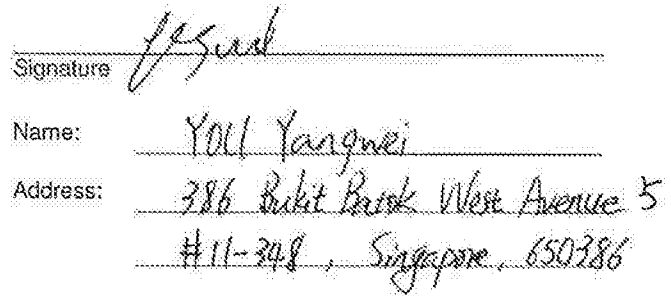 Signature
Name: YOU Yangwei
Address: 386 Bukit Batok West Avenue 5
#11-348, Singapore, 650386